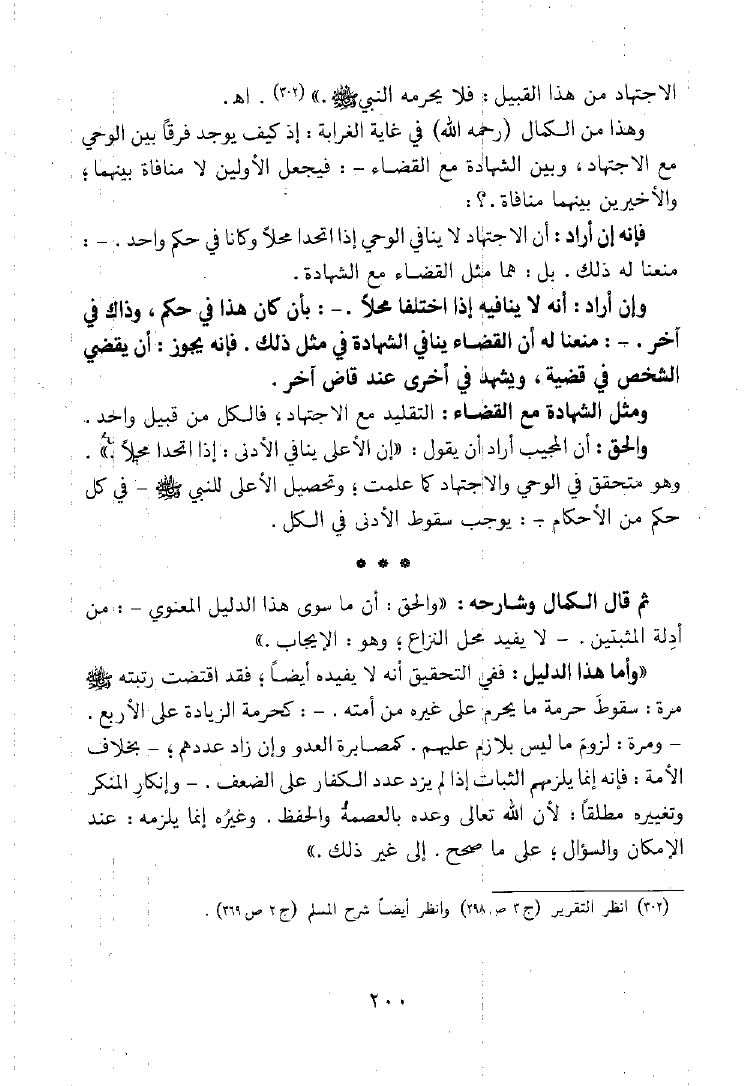 الاجتهاد من هذا القبيل : فلا يحرمه النبي ﷺ .» (٣٠٢) . اهـ.
وهذا من الكمال (رحمه الله) في غاية الغرابة : إذ كيف يوجد فرقاً بين الوحي
مع الاجتهاد ، وبين الشهادة مع القضاء – : فيجعل الأولين لا منافاة بينهما ؛
والأخيرين بينهما منافاة .؟ :
فإنه إن أراد : أن الاجتهاد لا ينافي الوحي إذا اتحدا محلاً وكانا في حكم واحد . – :
منعنا له ذلك . بل : هما مثل القضاء مع الشهادة .
وإن أراد : أنه لا ينافيه إذا اختلفا محلاً . – : بأن كان هذا في حكم ، وذاك في
آخر . – : منعنا له أن القضاء ينافي الشهادة في مثل ذلك . فإنه يجوز : أن يقضي
الشخص في قضية ، ويشهد في أخرى عند قاض آخر .
ومثل الشهادة مع القضاء : التقليد مع الاجتهاد ؛ فالكل من قبيل واحد .
والحق : أن المجيب أراد أن يقول : «إن الأعلى ينافي الأدنى : إذا اتحدا محلاً .» .
وهو متحقق في الوحي والاجتهاد كما علمت ؛ وتحصيل الأعلى للنبي ﷺ – في كل
حكم من الأحكام – : يوجب سقوط الأدنى في الكل .
* * *
ثم قال الكمال وشارحه : «والحق : أن ما سوى هذا الدليل المعنوي – : من
أدلة المثبتين . – لا يفيد محل النزاع ؛ وهو : الإيجاب .»
«وأما هذا الدليل : ففي التحقيق أنه لا يفيده أيضاً ؛ فقد اقتضت رتبته ﷺ
مرة : سقوطَ حرمة ما يحرم على غيره من أمته . – : كحرمة الزيادة على الأربع .
– ومرة : لزومَ ما ليس بلازم عليهم . كمصابرة العدو وإن زاد عددهم ؛ – بخلاف
الأمة : فإنه إنما يلزمهم الثبات إذا لم يزد عدد الكفار على الضعف . – وإنكارِ المنكر
وتغييره مطلقاً : لأن الله تعالى وعده بالعصمة والحفظ . وغيرُه إنما يلزمه : عند
الإمكان والسؤال ؛ على ما صحح . إلى غير ذلك .»
(٣٠٢) انظر التقرير (ج ٣ ص ٢٩٨) وانظر أيضاً شرح المسلم (ج ٢ ص ٣٦٩) .
٢٠٠